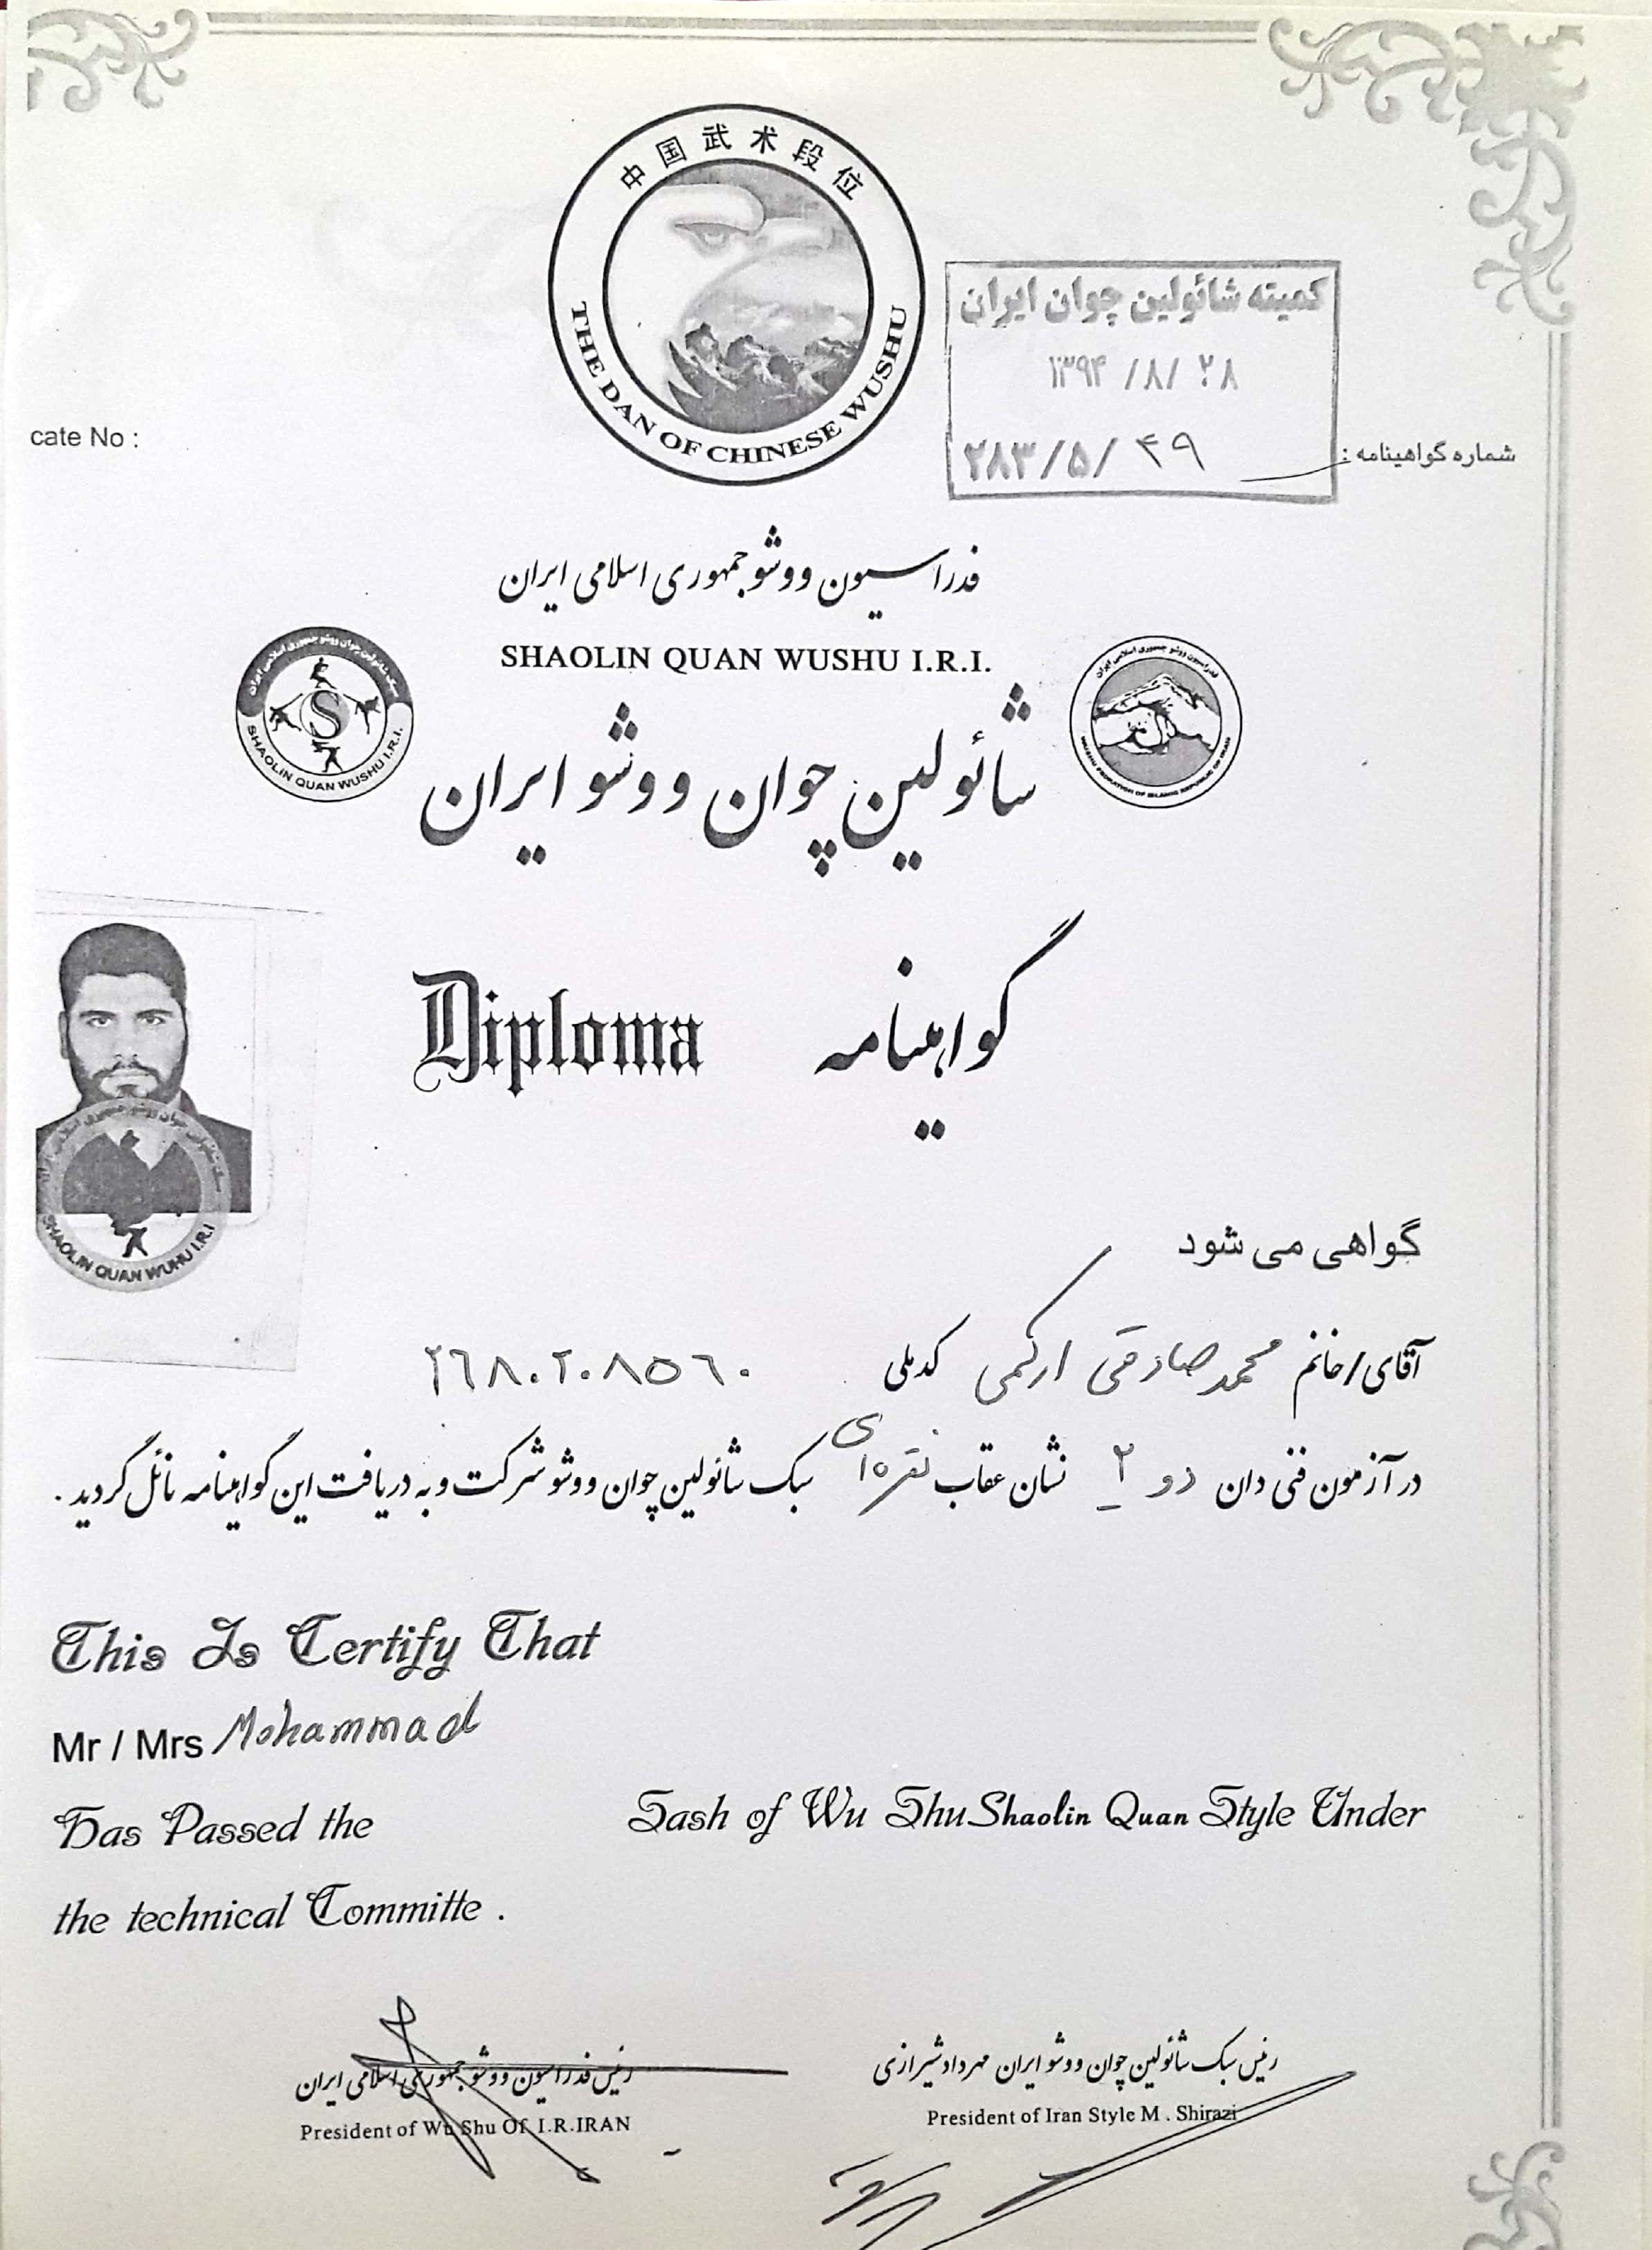 中国武术段位
THE DAN OF CHINESE WUSHU
کمیته شائولین چوان ایران
۱۳۹۴/۸/۲۸
۲۸۳/۵/۴۹
شماره گواهینامه :
cate No :
فدراسیون ووشو جمهوری اسلامی ایران
SHAOLIN QUAN WUSHU I.R.I.
سبک شائولین چوان ووشو جمهوری اسلامی ایران
S
SHAOLIN QUAN WUSHU I.R.I.
فدراسیون ووشو جمهوری اسلامی ایران
WUSHU FEDRATION OF ISLAMIC REPUBLIC OF IRAN
شائولین چوان ووشو ایران
Diploma گواهینامه
SHAOLIN QUAN WUHU I.R.I
گواهی می شود
آقای/خانم محمد صادقی ارکمی کدملی ۲۶۸۰۲۰۸۵۶۰
در آزمون فنی دان دو ۲ نشان عقاب نقره‌ای سبک شائولین چوان ووشو شرکت و به دریافت این گواهینامه نائل گردید .
This Is Certify That
Mr / Mrs Mohammad
Has Passed the Sash of Wu Shu Shaolin Quan Style Under
the technical Committe .
رئیس سبک شائولین چوان ووشو ایران مهرداد شیرازی
President of Iran Style M . Shirazi
رئیس فدراسیون ووشو جمهوری اسلامی ایران
President of Wu Shu Of I.R.IRAN